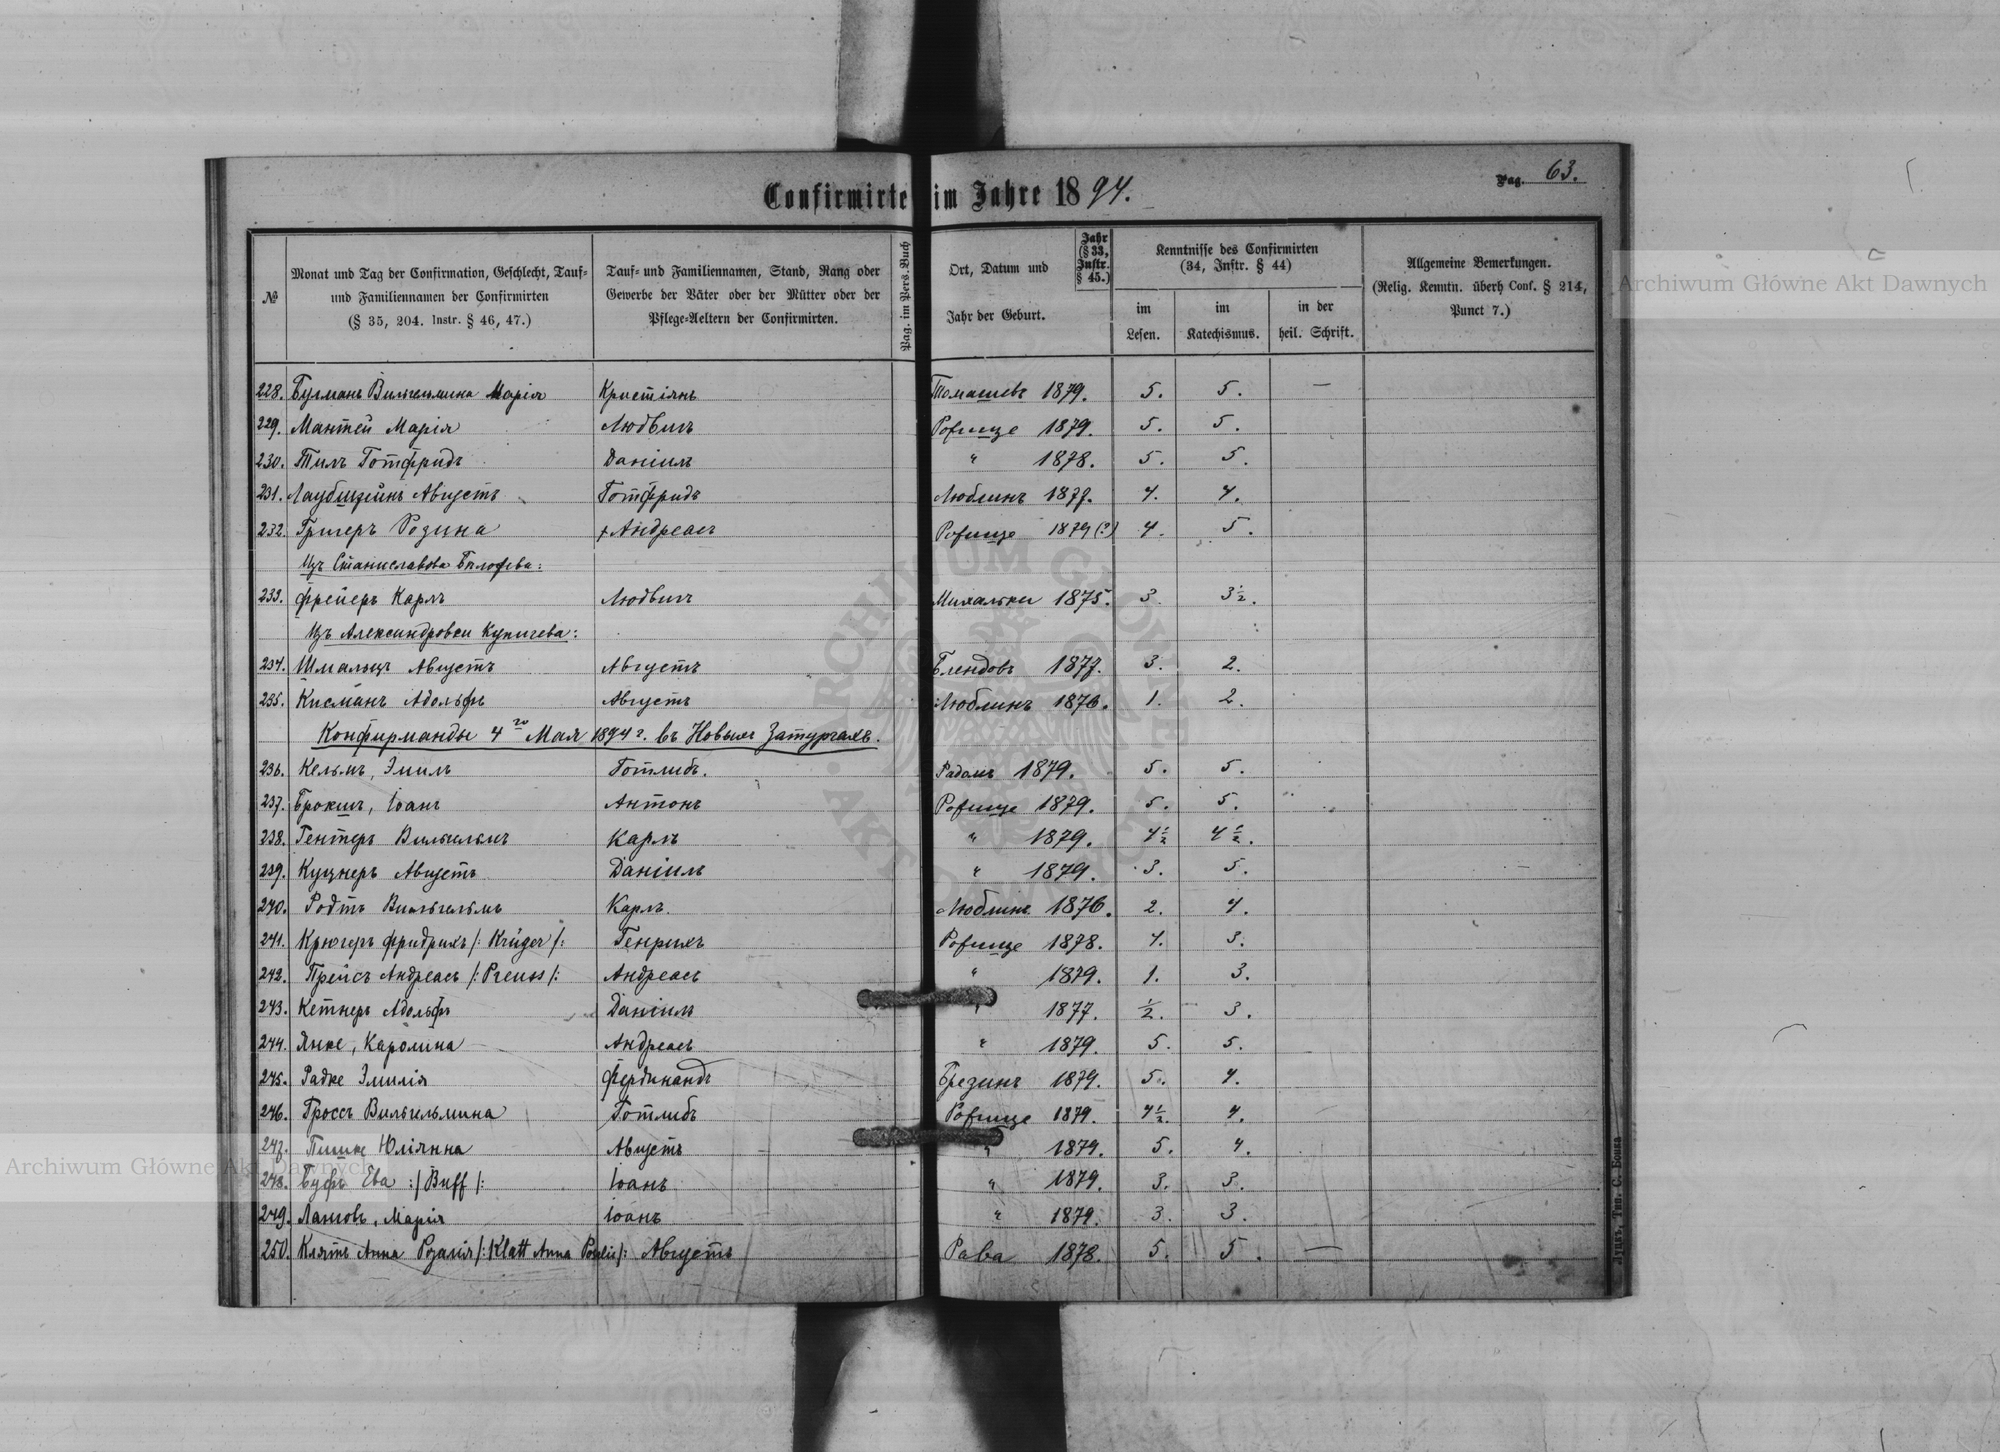 Confirmirte im Jahre 1894.
Pag. 63.
№
Monat und Tag der Confirmation, Geschlecht, Tauf-
und Familiennamen der Confirmirten
(§ 35, 204. Instr. § 46, 47.)
Tauf- und Familiennamen, Stand, Rang oder
Gewerbe der Väter oder der Mütter oder der
Pflege-Aeltern der Confirmirten.
Pag. im Pers. Buch
Ort, Datum und
Jahr der Geburt.
Jahr
(§ 33,
Instr.
§ 45.)
Kenntnisse des Confirmirten
(34, Instr. § 44)
im
Lesen.
im
Katechismus.
in der
heil. Schrift.
Allgemeine Bemerkungen.
(Relig. Kenntn. überh Conf. § 214,
Punct 7.)
228. Бугманъ Вильгельмина Марія Кристіянъ Томашевъ 1879. 5. 5. —
229. Мантей Марія Людвигъ Рофище 1879. 5. 5.
230. Тилъ Готфридъ Даніилъ " 1878. 5. 5.
231. Лаубштейнъ Августъ Готфридъ Люблинъ 1877. 4. 4.
232. Григеръ Розина + Андреасъ Рофище 1879 (?) 4. 5.
Изъ Станиславова :
233. Фрейеръ Карлъ Людвигъ Михалки 1875. 3. 3½.
Изъ Александровки Купичева:
234. Шмальцъ Августъ Августъ Блендовъ 1877. 3. 2.
235. Кисманъ Адольфъ Августъ Люблинъ 1876. 1. 2.
Конфирманды 4го Мая 1894 г. въ Новыхъ Затурцахъ.
236. Кельмъ, Эмиль Готлибъ. Радомъ 1879. 5. 5.
237. Брокшъ, Іоанъ Антонъ Рофище 1879. 5. 5.
238. Гентеръ Вильгельмъ Карлъ " 1879. 4½ 4½.
239. Куцнеръ Августъ Даніилъ " 1879. 3. 5.
240. Родтъ Вильгельмъ Карлъ. Люблинъ 1876. 2. 4.
241. Крюгеръ Фридрихъ /: Krüger /: Генрихъ Рофище 1878. 4. 3.
242. Прейсъ Андреасъ /: Preuss /: Андреасъ " 1879. 1. 3.
243. Кетнеръ Адольфъ Даніилъ " 1877. ½. 3.
244. Янке, Каролина Андреасъ " 1879. 5. 5.
245. Радке Эмилія Фердинандъ Брезинъ 1879. 5. 4.
246. Гроссъ Вильгельмина Готлибъ Рофище 1879. 4½. 4.
247. Пишке Юліянна Августъ " 1879. 5. 4.
248. Буфъ Ева :/ Buff /: Іоанъ " 1879. 3. 3.
249. Ланговъ, Марія Іоанъ " 1879. 3. 3.
250. Клятъ Анна Розалія /: Klatt Anna Rosalie /: Августъ Рава 1878. 5. 5. —
Луцкъ, Тип. С. Бонка
Archiwum Główne Akt Dawnych
Archiwum Główne Akt Dawnych
ARCHIWUM GŁÓWNE AKT DAWNYCH